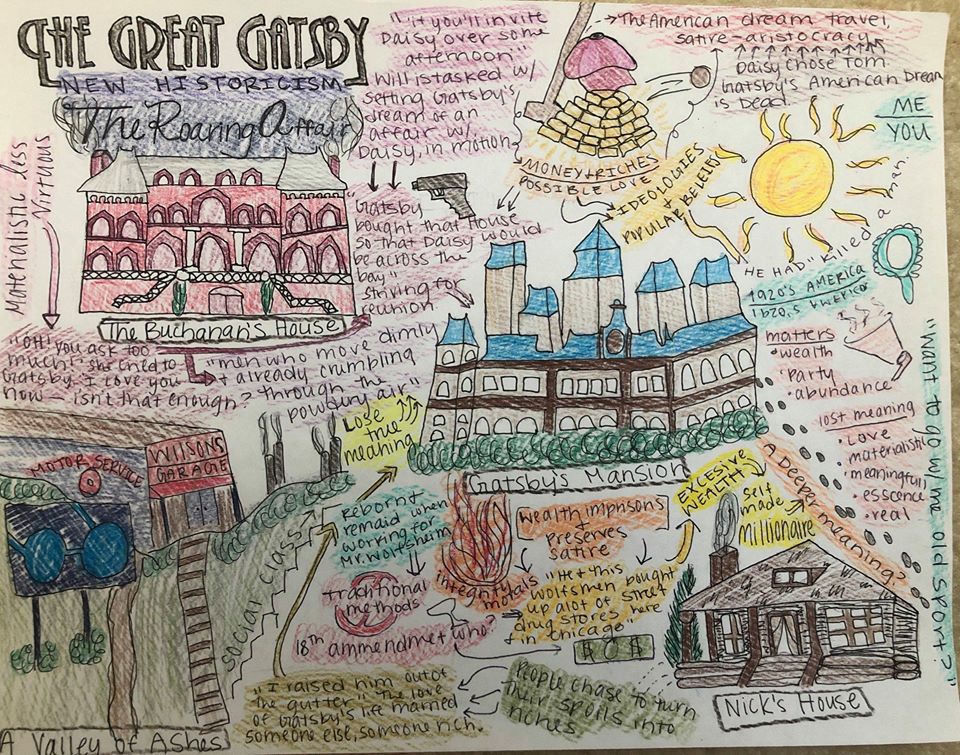 THE GREAT GATSBY
NEW HISTORICISM
The Roaring Affair
Materialistic less
Virtuous
The Buchanan's House
"if you'll invite
Daisy over some
afternoon"
Will is tasked w/
setting Gatsby's
dream of an
affair w/
Daisy, in motion
Gatsby
bought that House
so that Daisy would
be across the
bay"
striving for
reunion
→The American dream travel,
satire-aristocracy
Daisy chose Tom
Gatsby's American Dream
is Dead.
MONEY+RICHES
POSSIBLE LOVE
IDEOLOGIES
+
POPULAR BELEIFS
ME
YOU
HE HAD" killed
a man.
1920's AMERICA
matters
• wealth
• party
• abundance
lost meaning
• Love
materialistic
• meaningful
esscence
• real
"want to go w/me old sport?"
"OH! you ask too
much!" she cried to
Gatsby. I love you
now - isn't that enough?
"men who move dimly
+ already crumbling
through the
powdury air"
LOSE
true
meaning
Gatsby's Mansion
A Deeper meaning?
MOTOR SERVICE
WILSONS
GARAGE
social class
A Valley of Ashes
Reborn+
remaid when
working for
Mr. Wolfsheim
traditional
methods
18th ammendmet who?
integrity
morals
wealth imprisons
+
preserves
satire
EXCESSIVE
WEALTH
self
made
millionaire
"He+ this
wolfsmen bought
up alot of street
drug stores here
+ in chicago"
$ $
"I raised him out of
the gutter" The love
of Gatsby's life married
someone else, someone rich.
People chase to turn
their spoils into
riches
Nick's House